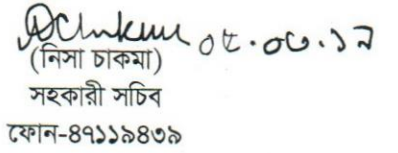 ০৫.০৩.১৯
(নিসা চাকমা)
সহকারী সচিব
ফোন-৪৭১১৯৪৩৯